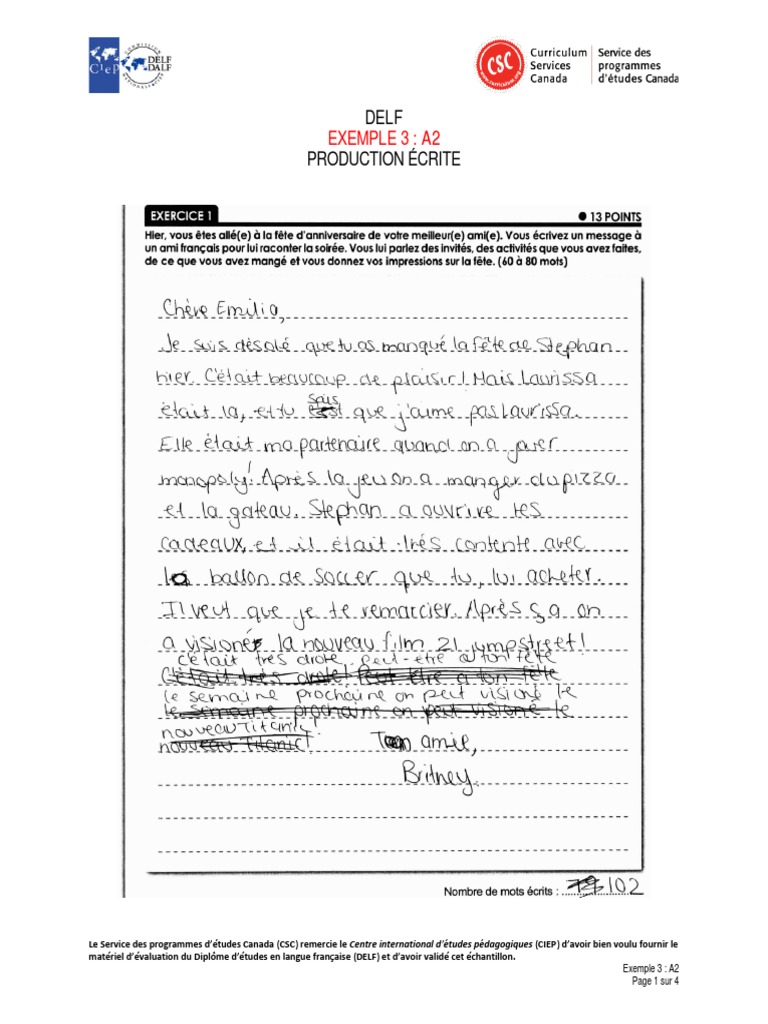 CIEP
COMMISSION
DELF
DALF
NATIONALE
CSC
www.curriculum.org
Curriculum
Services
Canada
Service des
programmes
d'études Canada
DELF
EXEMPLE 3 : A2
PRODUCTION ÉCRITE
EXERCICE 1
● 13 POINTS
Hier, vous êtes allé(e) à la fête d'anniversaire de votre meilleur(e) ami(e). Vous écrivez un message à
un ami français pour lui raconter la soirée. Vous lui parlez des invités, des activités que vous avez faites,
de ce que vous avez mangé et vous donnez vos impressions sur la fête. (60 à 80 mots)
Chère Emilia,
Je suis désolé que tu as manqué la fête de Stephan
hier. C'était beaucoup de plaisir! Mais Laurissa
était la, et tu sais que j'aime pas Laurissa.
Elle était ma partenaire quand on a jouer
monopoly! Après la jeu on a manger du pizza
et la gateau. Stephan a ouvrire tes
cadeaux, et il était très contente avec
la ballon de soccer que tu, lui acheter.
Il veut que je te remarcier. Après ça on
a visioner la nouveau film 21 jumpstreet!
c'était très drole, peut-être a ton fête
C'était très drole! Peut être a ton fête
le semaine prochaine on peut visioné le
le semaine prochaine on peut visioné le
nouveau Titanic!
nouveau Titanic!
Ton amie,
Britney
Nombre de mots écrits : 102
Le Service des programmes d'études Canada (CSC) remercie le Centre international d'études pédagogiques (CIEP) d'avoir bien voulu fournir le
matériel d'évaluation du Diplôme d'études en langue française (DELF) et d'avoir validé cet échantillon.
Exemple 3 : A2
Page 1 sur 4